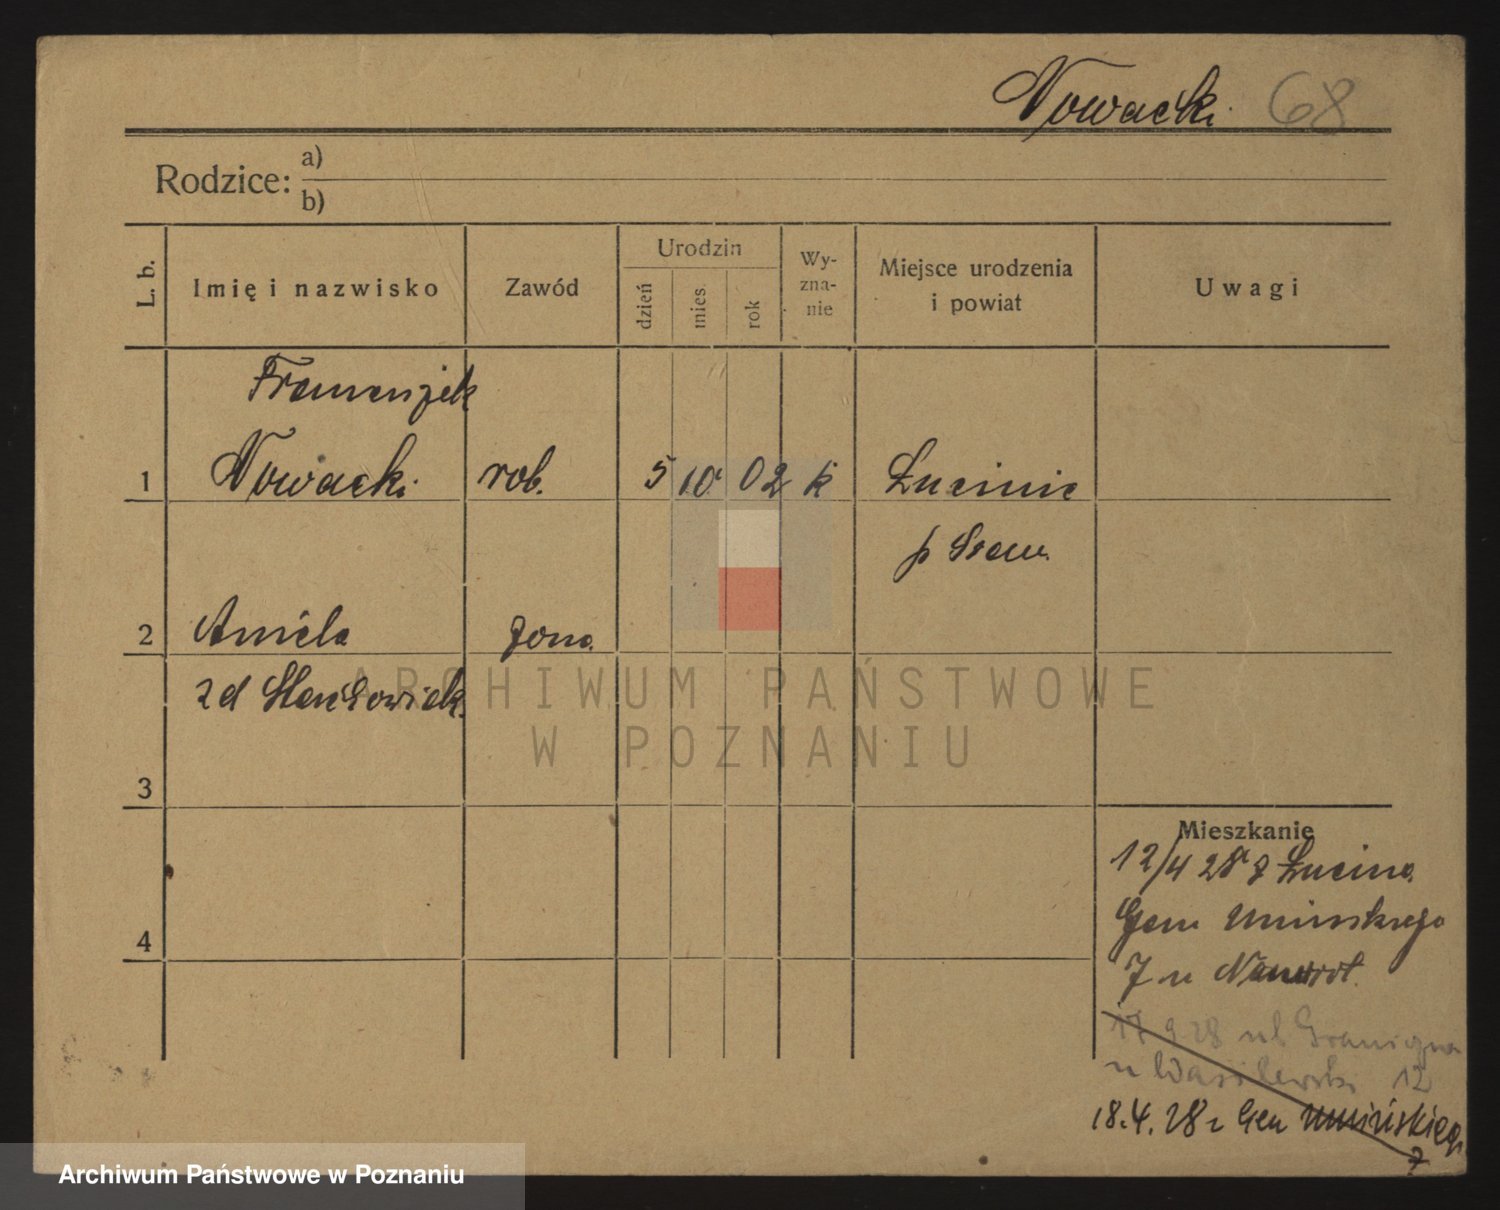 Nowacki 68
Rodzice: a)
b)
L. b. Imię i nazwisko Zawód Urodzin dzień mies. rok Wy-zna-nie Miejsce urodzenia i powiat Uwagi
Franciszek
1 Nowacki rob. 5 10 02 k Łucinie
p Śrem.
2 Aniela żona
zd
3
4
Mieszkanie
12/4 28 z Łucina
Gen Umińskiego
7 u Nawrot
17 9 28 ul Graniczna
u Wasilewski 12
18.4.28 z Gen Umińskiego
7
ARCHIWUM PAŃSTWOWE
W POZNANIU
Archiwum Państwowe w Poznaniu